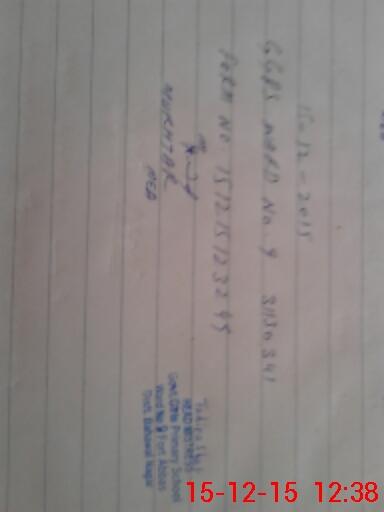 15-12-2015
GGPS WARD No 9 31130341
FORM NO 151215123245
MUKHTAR
MEA
HEAD MISTRESS
Govt. Girls Primary School
Ward No 9 Fort Abbas
Distt. Bahawal Nagar
15-12-15 12:38